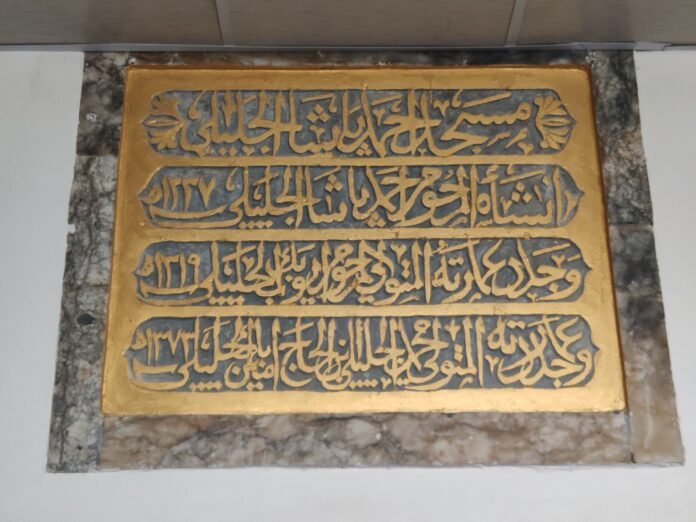 مسجد احمد باشا الجليلي
انشأه المرحوم احمد باشا الجليلي سنة ١٢٣٧ هـ
وجدد عمارته المتولي المرحوم ايوب بك الجليلي سنة ١٣١٩ هـ
وجدد عمارته المتولي احمد الجليلي بن الحاج امين بك الجليلي سنة ١٣٧٣ هـ